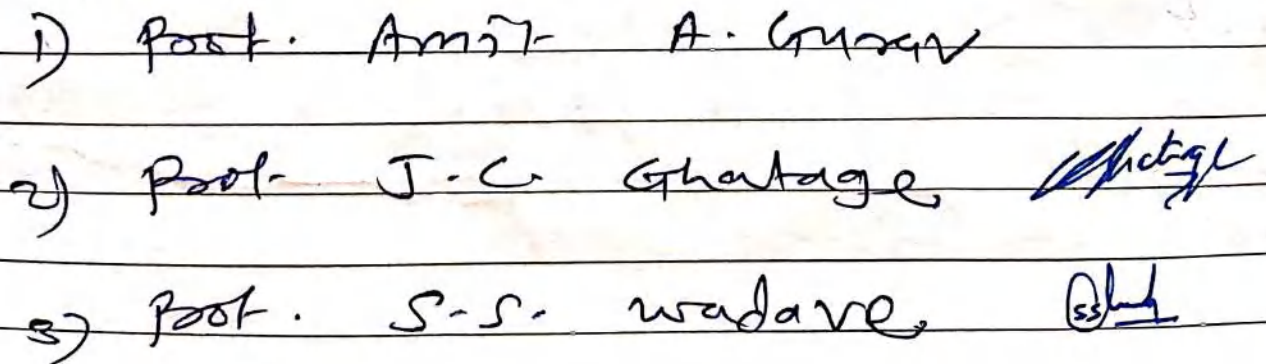 1) Prof. Amit A. Gurav
2) Prof. J.C. Ghatage Ghatage
3) Prof. S.S. wadave